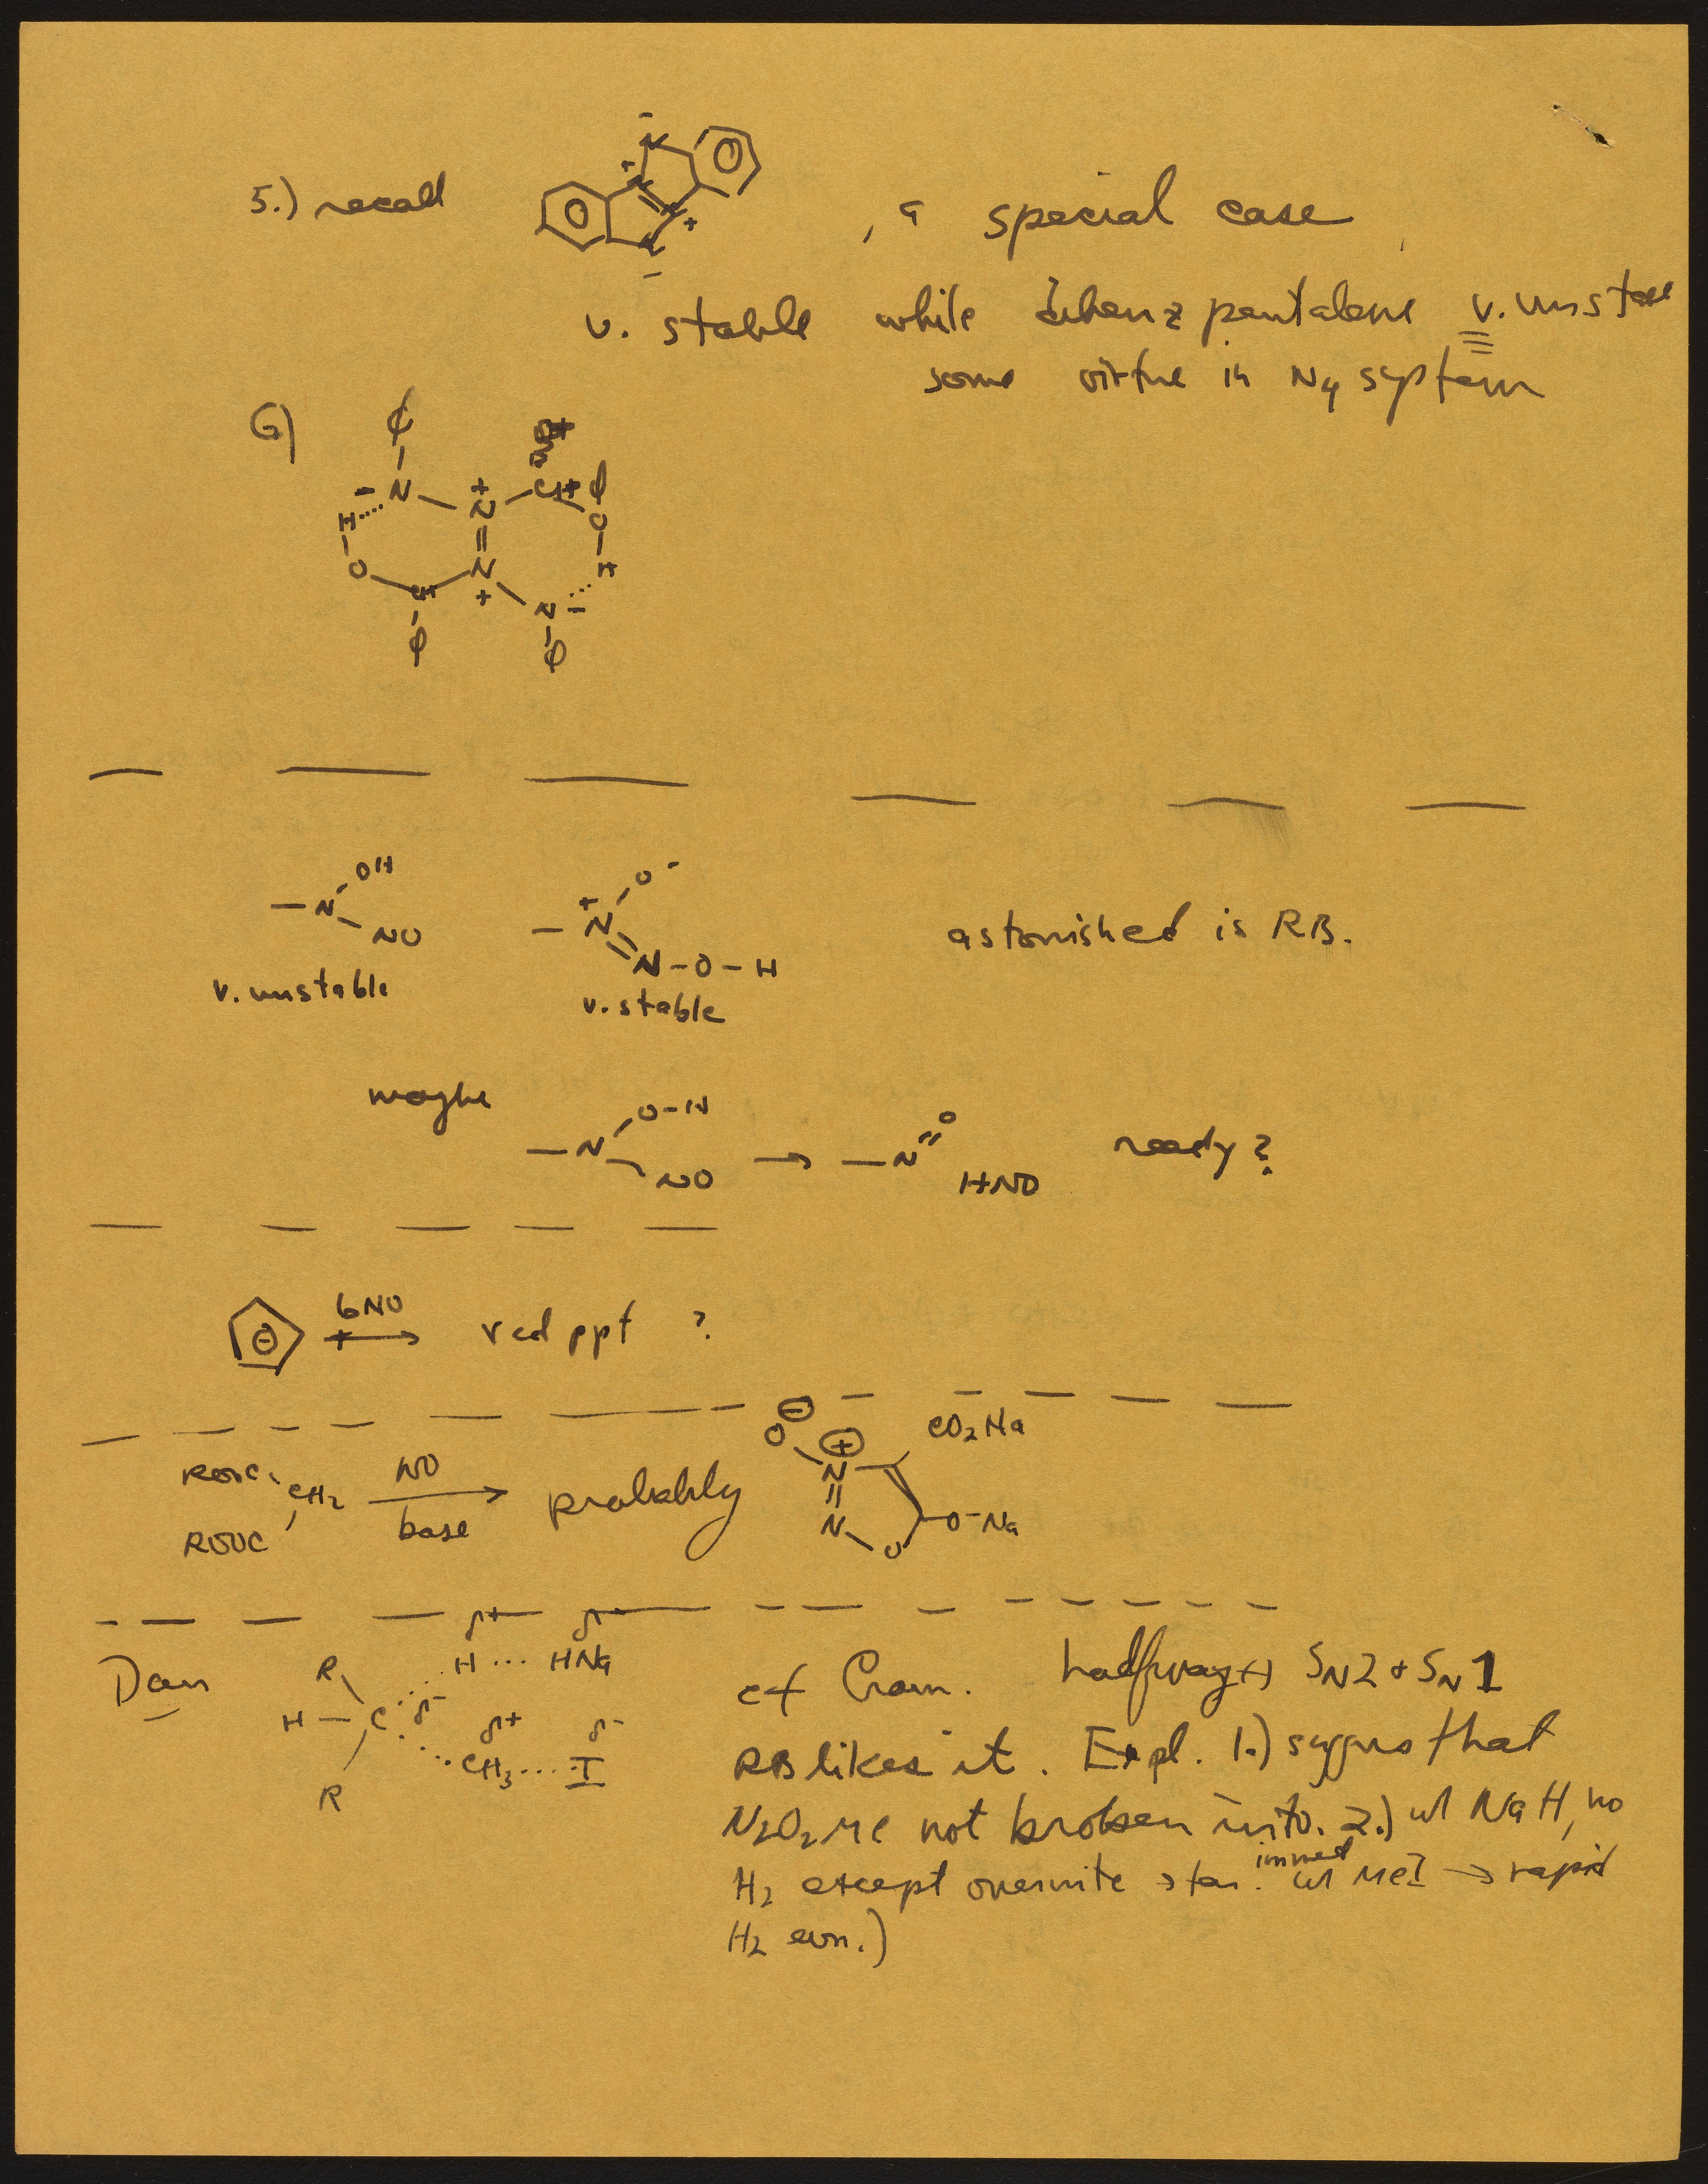 5.) recall
N -
+ N
N +
N
-
, a special case
v. stable while dibenz pentalene v. unstable
some virtue in N4 system
6)
ϕ
- N + N CH ϕ
H O
O N H
CH + N -
ϕ ϕ
- N OH
NO
v. unstable
+ N O -
N - O - H
v. stable
astonished is RB.
maybe
- N O-H
NO → - N = O
HNO
ready ?
⊖ + 6NO → red ppt ?
ROOC
CH2
ROOC
NO
base
probably
⊖
O ⊕ CO2Na
N
N O-Na
O
Dan
R δ+ δ+
H ... HNa
H - C δ-
δ+ δ-
CH3 .... I
R
cf Cram. halfway SN2 + SN1
RB likes it. Expl. 1.) suggests that
N2O2Me not broken into. 2.) w/ NaH, no
H2 except overnite stan. immed w/ MeI → rapid
H2 evn.)